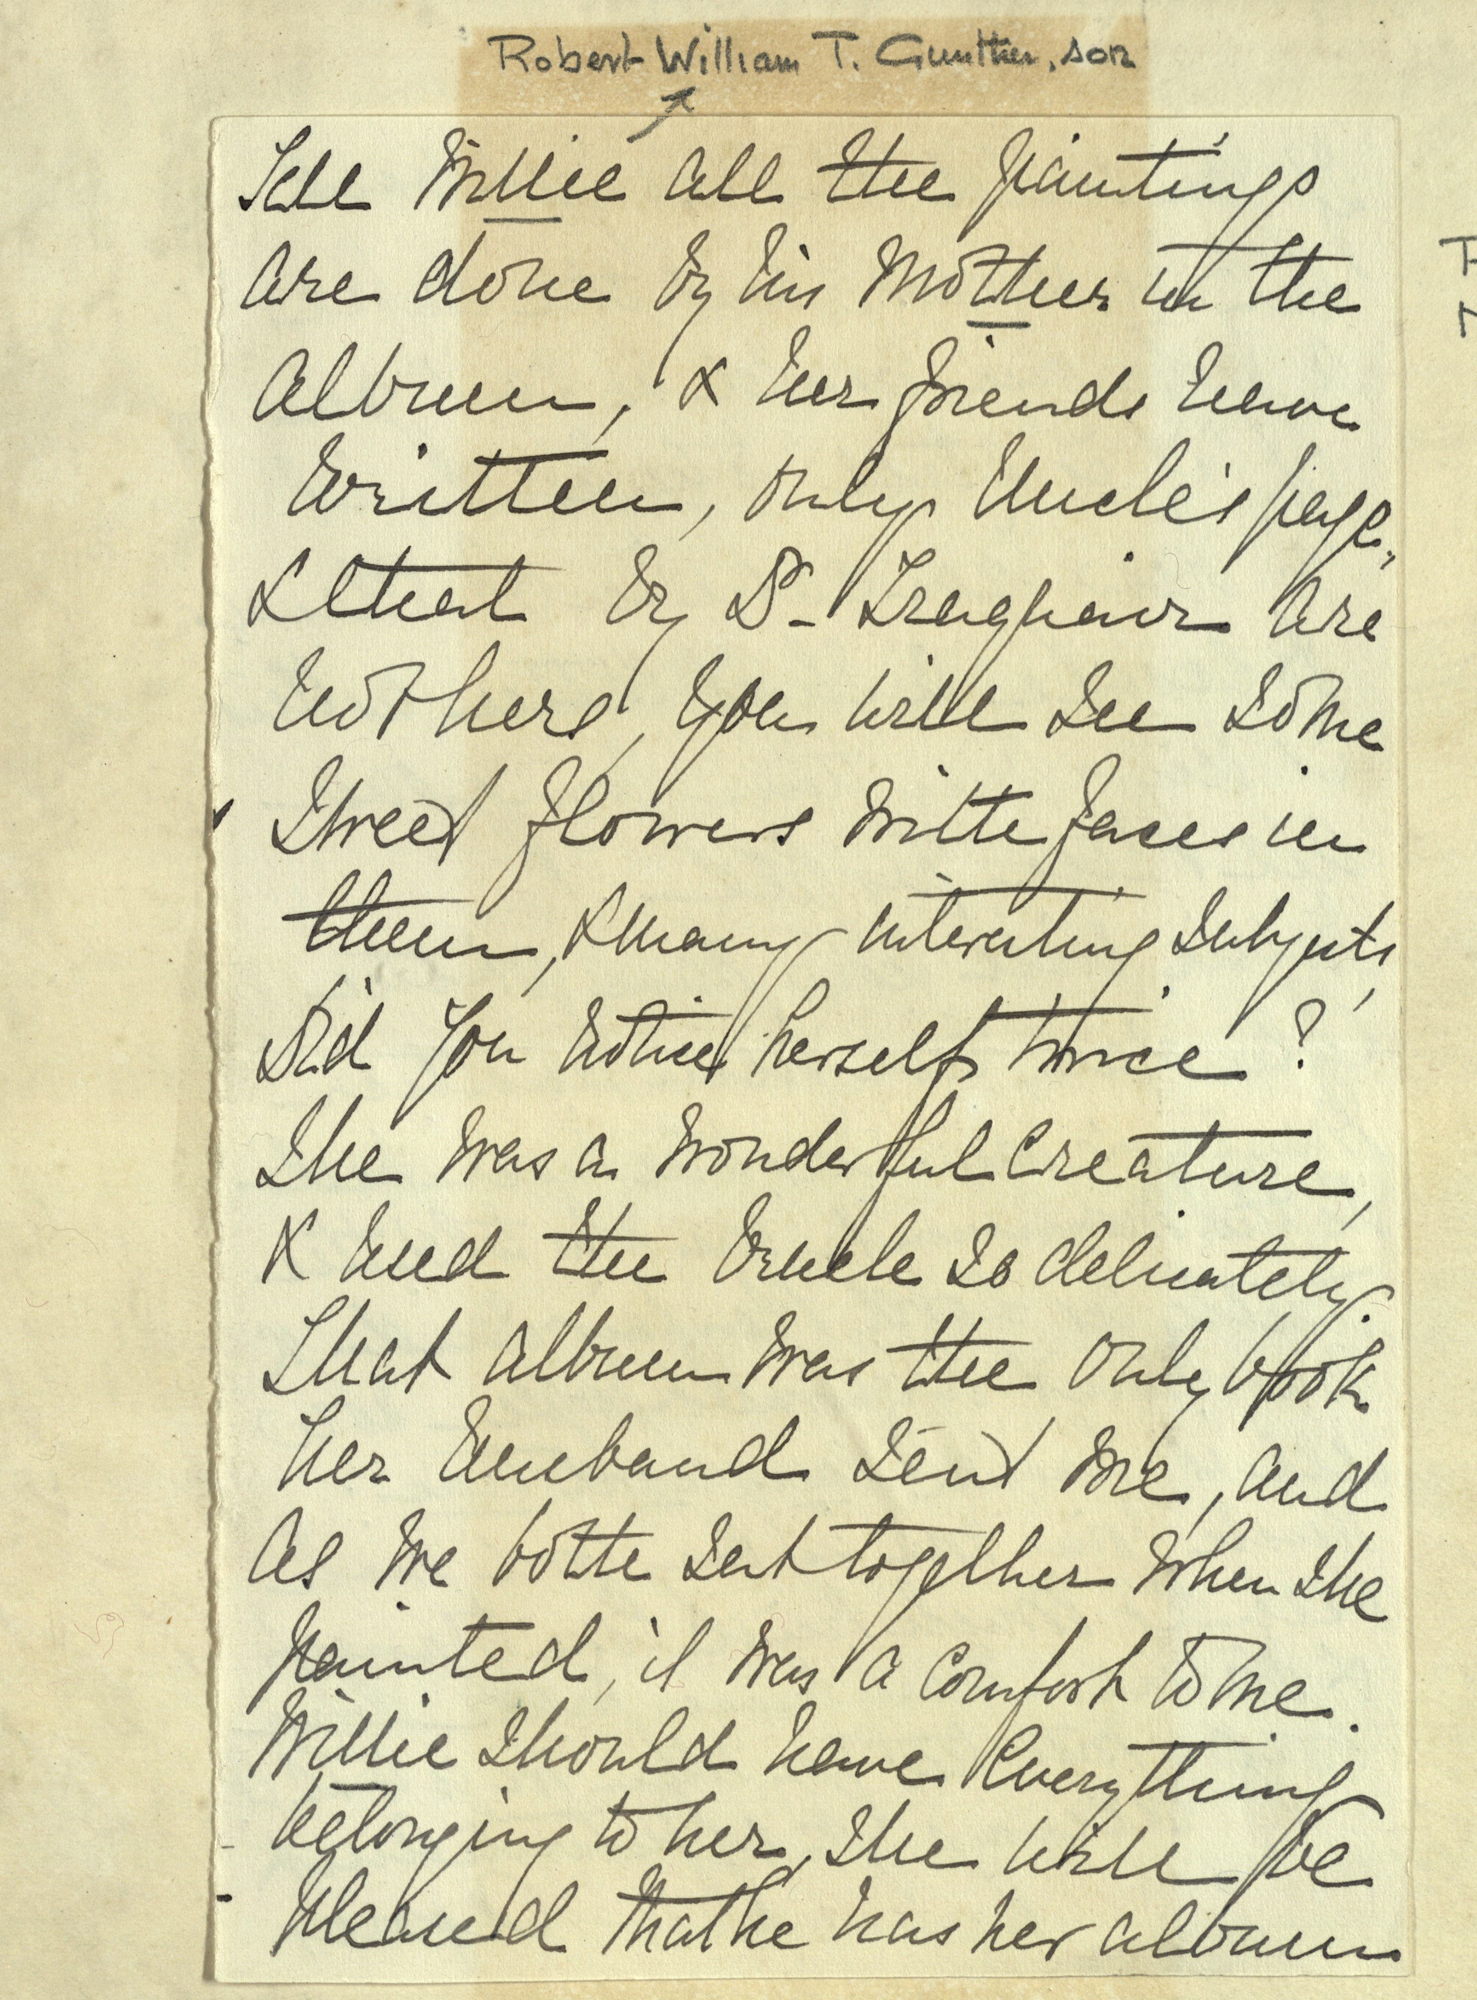 Robert William T. Gunther, son
Tell Willie all the paintings
are done by his Mother in the
album, & her friends have
written, only Uncle's page,
& that by Dr Traquair are
not hers, you will see some
sweet flowers with faces in
them, & many interesting subjects,
Did you notice herself twice?
She was a wonderful creature,
& used the so delicately.
That album was the only book
her husband sent me, and
as we both sat together when she
painted, it was a comfort to me.
Willie should have everything
belonging to her, she will be
pleased that he has her album